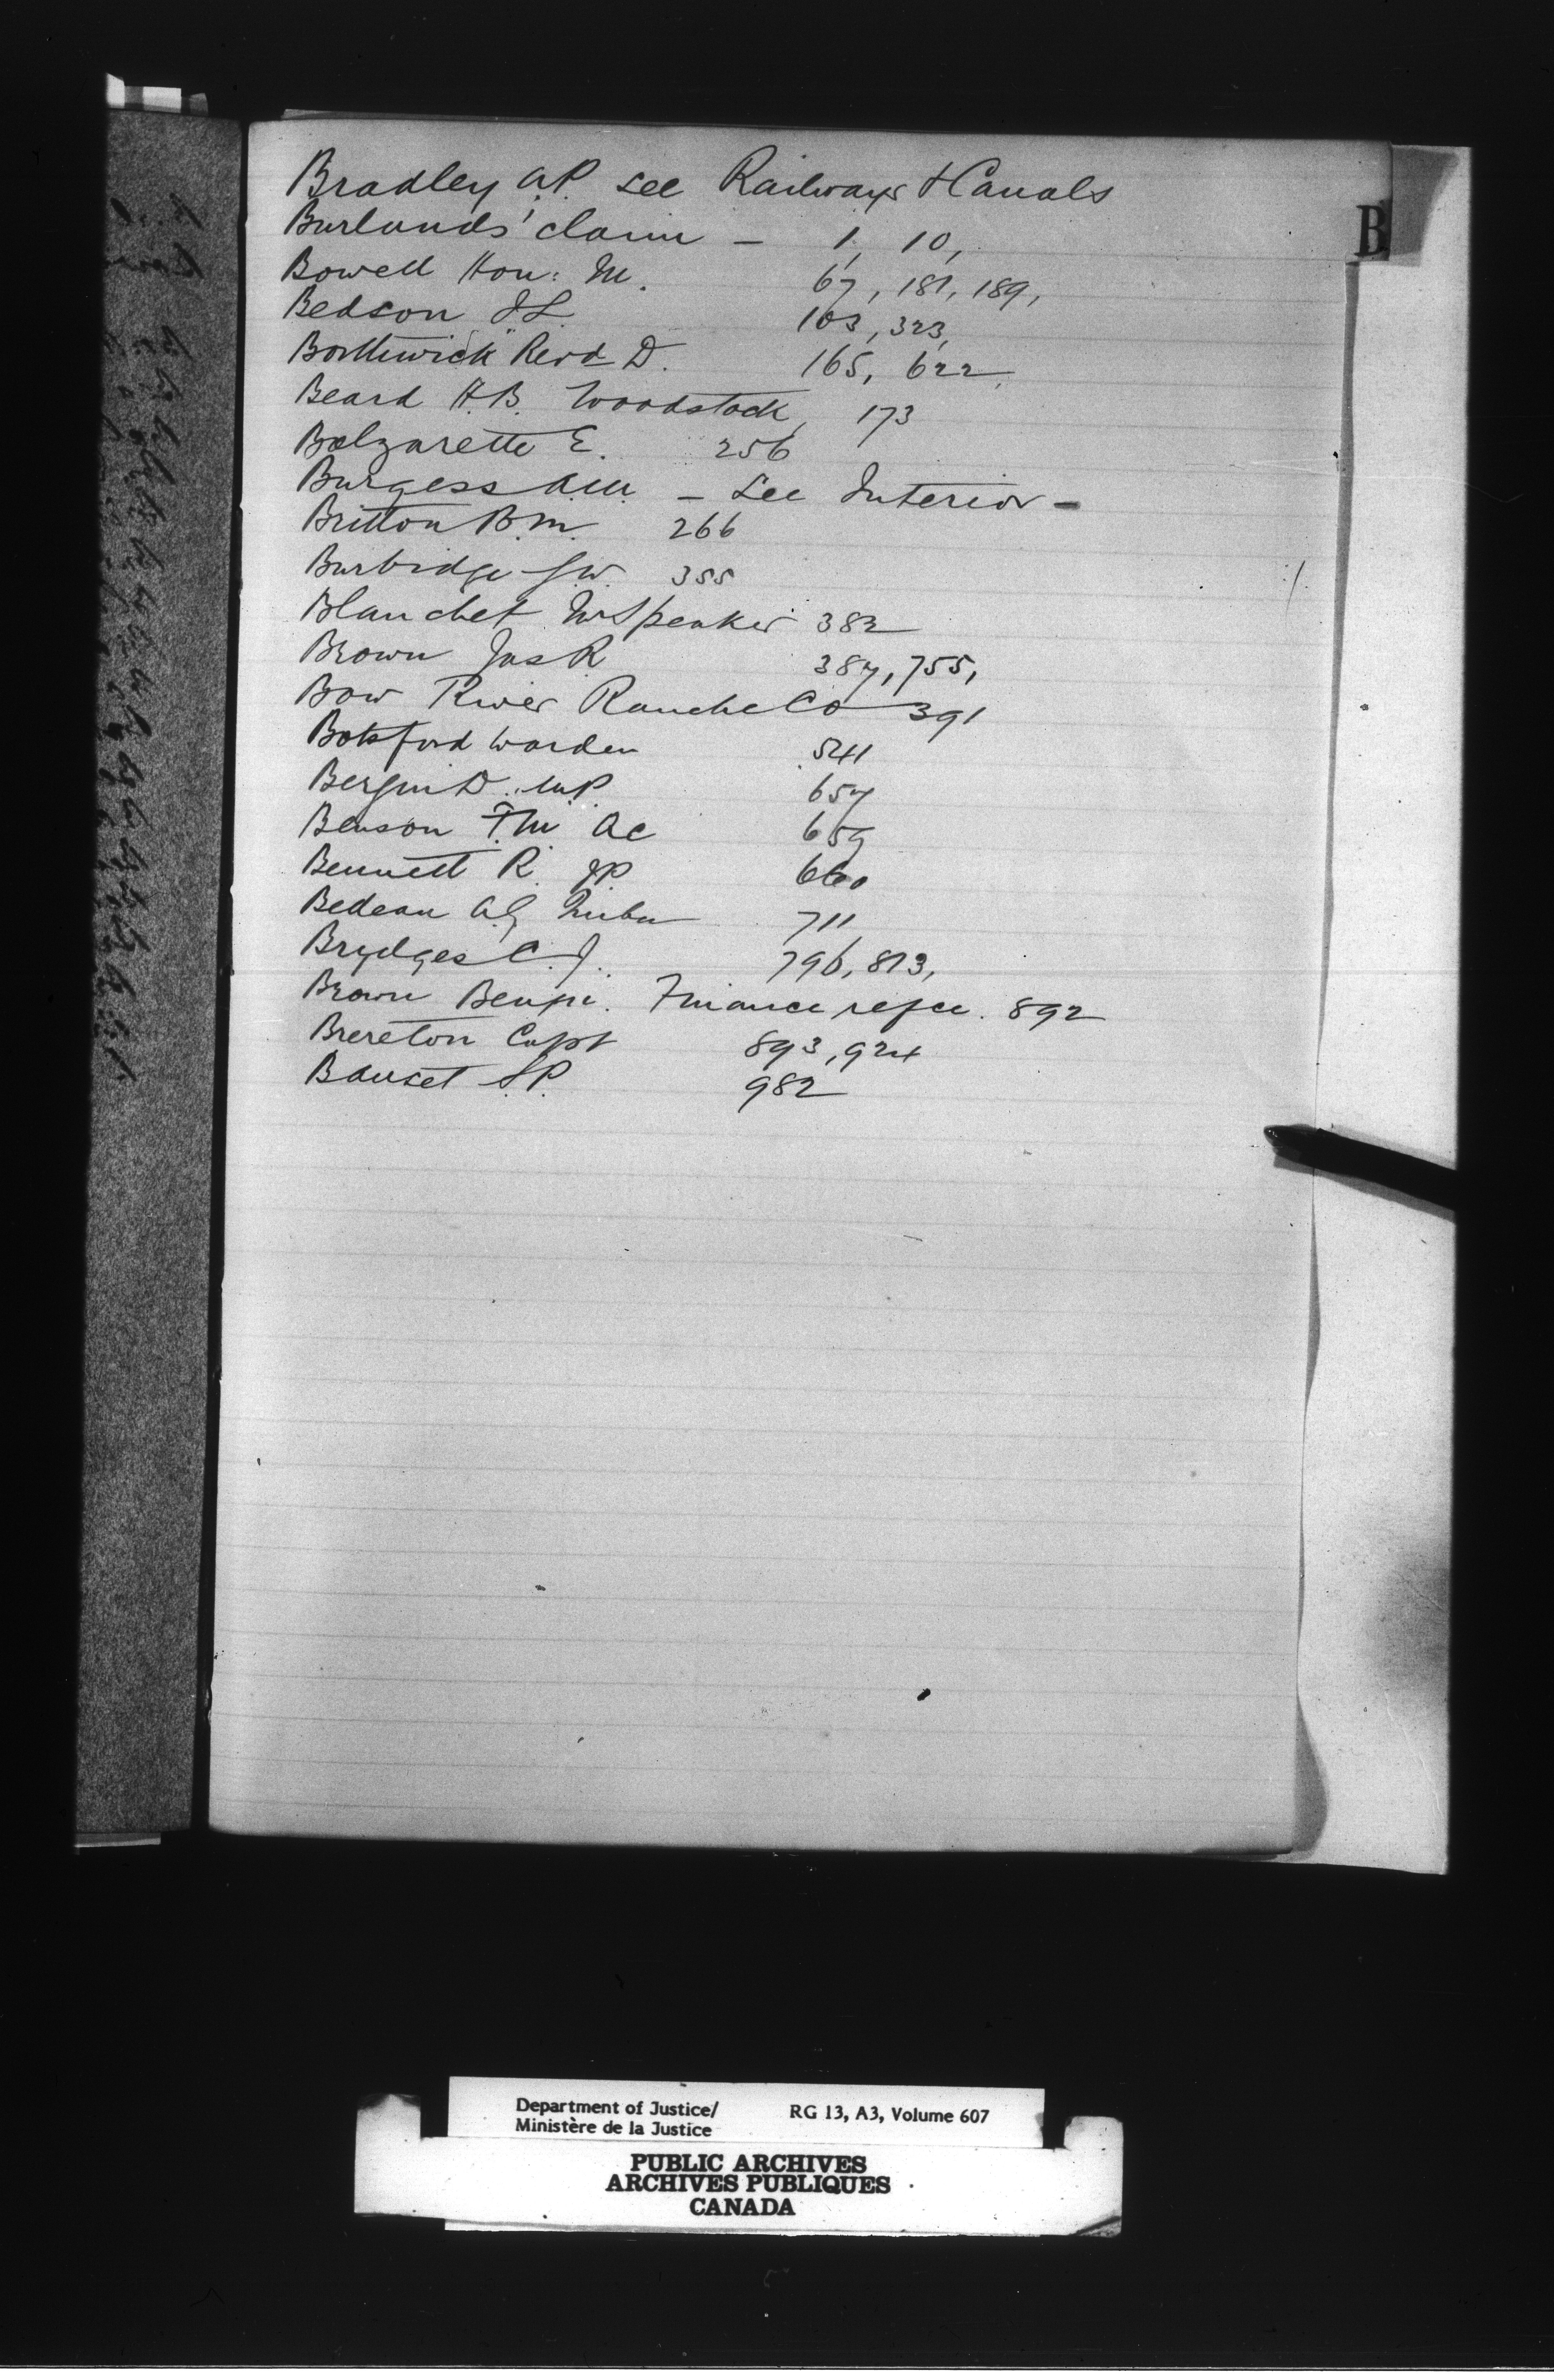 B
Bradley A.P. see Railways & Canals
Burlands' claim - 1, 10,
Bowell Hon: M. 67, 181, 189,
Bedson S.L. 103, 323,
Borthwick Revd D. 165, 622,
Beard H.B. Woodstock, 173
Balzarette E. 256
Burgess A.M. - See Interior -
Britton B.M. 266
Burbidge G.W. 355
Blanchet Mr Speaker 382
Brown Jas R 387, 755,
Bow River Ranche Co 391
Botsford Warden 541
Bergin D. M.P. 657
Benson T.M. QC 659
Bennett R. JP 660
Bedeau A.G. 711
Brydges C.J. 796, 813,
Brown Benjn. Finance refce. 892
Brereton Capt 893, 924
Bauset S.P. 982
Department of Justice/ RG 13, A3, Volume 607
Ministère de la Justice
PUBLIC ARCHIVES
ARCHIVES PUBLIQUES
CANADA